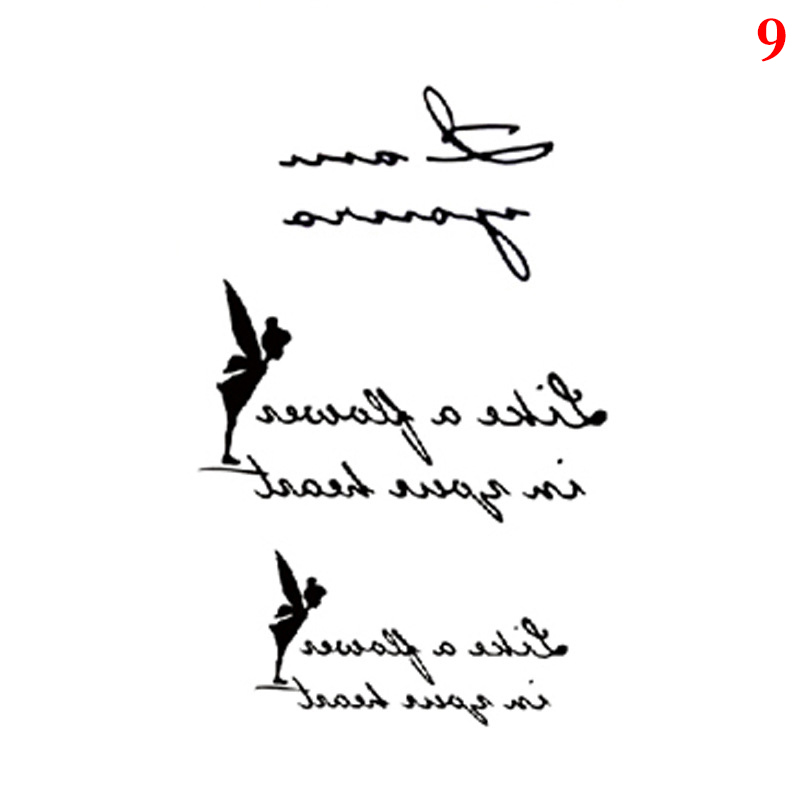 9
I am
yours
Like a flower
in your heart
Like a flower
in your heart